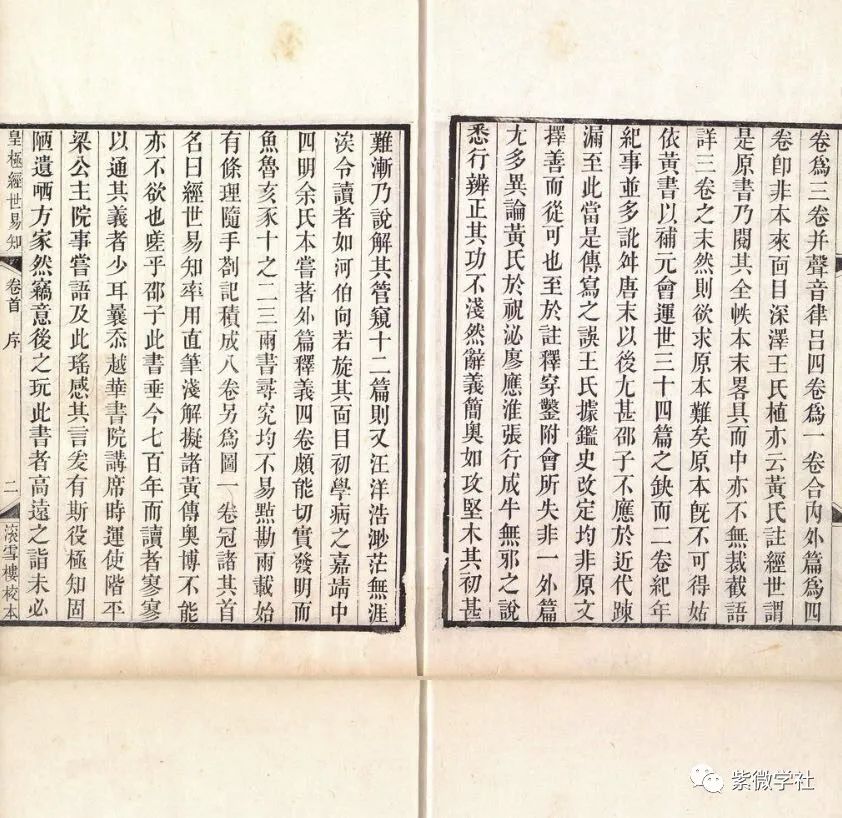 卷爲三卷并聲音律呂四卷爲一卷合內外篇爲四
卷卽非本來面目深澤王氏植亦云黃氏註經世謂
是原書乃閱其全帙本末畧具而中亦不無裁截語
詳三卷之末然則欲求原本難矣原本旣不可得姑
依黃書以補元會運世三十四篇之缺而二卷紀年
紀事並多訛舛唐末以後尤甚邵子不應於近代踈
漏至此當是傳寫之誤王氏據鑑史改定均非原文
擇善而從可也至於註釋穿鑿附會所失非一外篇
尤多異論黃氏於祝泌廖應淮張行成牛無邪之說
悉行辨正其功不淺然辭義簡奧如攻堅木其初甚
難漸乃說解其管窺十二篇則又汪洋浩渺茫無涯
涘令讀者如河伯向若旋其面目初學病之嘉靖中
四明余氏本嘗著外篇釋義四卷頗能切實發明而
魚魯亥豕十之二三兩書尋究均不易㸃勘兩載始
有條理隨手劄記積成八卷另爲圖一卷冠諸其首
名曰經世易知率用直筆淺解擬諸黃傳奧博不能
亦不欲也嗟乎邵子此書垂今七百年而讀者寥寥
以通其義者少耳曩忝越華書院講席時運使階平
梁公主院事嘗語及此瑤感其言爰有斯役極知固
陋遺哂方家然竊意後之玩此書者高遠之詣未必
皇極經世易知 卷首 序 二 滾雪樓校本
紫微学社